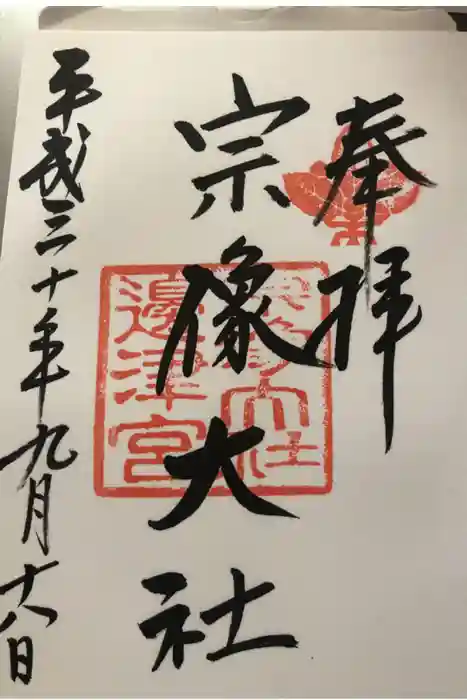 奉拝
宗像大社
宗像大社
邊津宮
平成三十年九月十八日